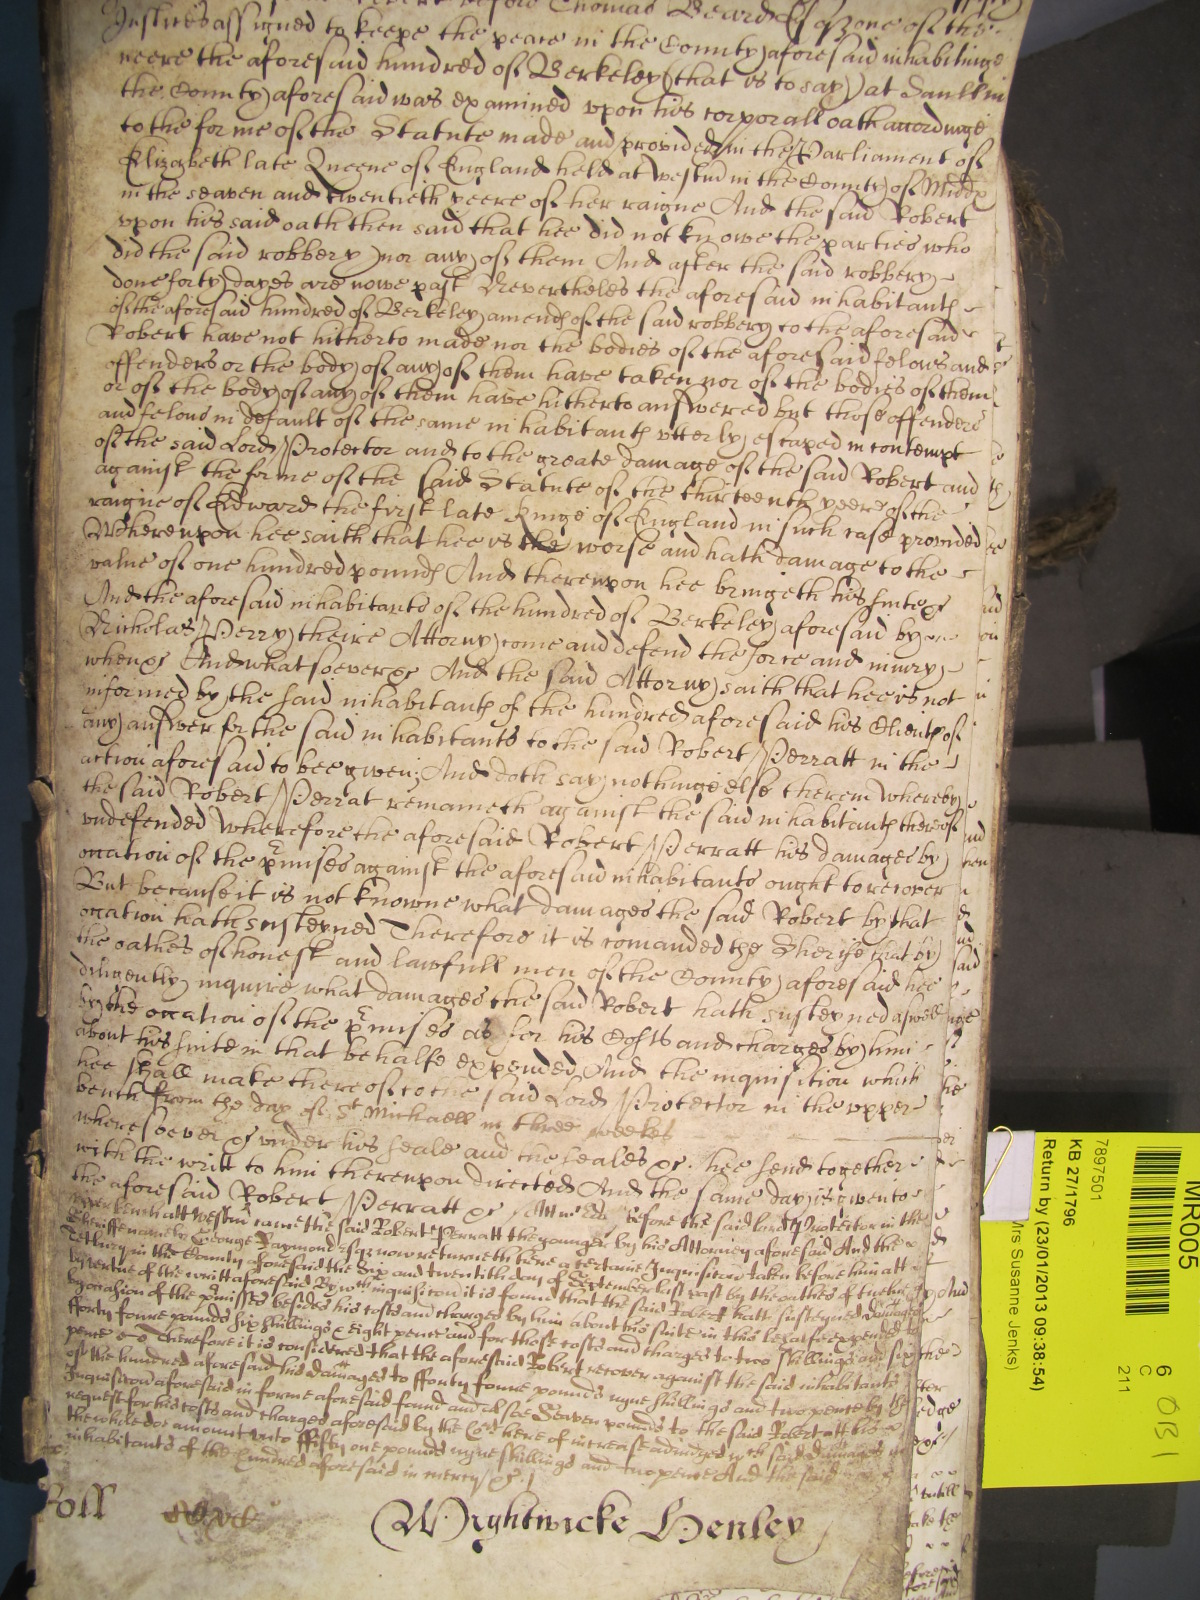 before Thomas Beard Esq one of the
Justices assigned to keepe the peace in the County aforesaid inhabitinge
neere the aforesaid hundred of Berkeley (that is to say) at Saull in
the County aforesaid was examined vpon his corporall oath accordinge
to the forme of the Statute made and provided in the Parliament of
Elizabeth late Queene of England held at Westm in the County of Midd
in the seaven and twentieth yeere of her raigne And the said Robert
vpon his said oath then said that hee did not knowe the parties who
did the said robbery nor any of them And after the said robbery
done forty dayes are nowe past Nevertheles the aforesaid inhabitants
of the aforesaid hundred of Berkeley amends of the said robbery to the aforesaid
Robert have not hitherto made nor the bodies of the aforesaid felons and
offenders or the body of any of them have taken nor of the bodies of them
or of the body of any of them have hitherto answered but those offenders
and felons in default of the same inhabitants vtterly escaped in contempt
of the said Lord Protector and to the greate damage of the said Robert and
against the forme of the said Statute of the thirteenth yeere of the
raigne of Edward the first late Kinge of England in such case provided
Wherevpon hee saith that hee is the worse and hath damage to the
value of one hundred pounds And therevpon hee bringeth his suite &c
And the aforesaid inhabitants of the hundred of Berkeley aforesaid by
Nicholas Perry theire Attorny come and defend the force and iniury
when &c And whatsoever &c And the said Attorny saith that hee is not
informed by the said inhabitants of the hundred aforesaid his Clients of
any answer for the said inhabitants to the said Robert Perratt in the
action aforesaid to bee given; And doth say nothinge else therein Whereby
the said Robert Perrat remaineth against the said inhabitants thereof
vndefended Wherefore the aforesaid Robert Perratt his damages by
occation of the pmises against the aforesaid inhabitants ought to recover
But because it is not knowne what damages the said Robert by that
occation hath susteyned Therefore it is comanded the Sherife that by
the oathes of honest and lawfull men of the County aforesaid hee
diligently inquire what damages the said Robert hath susteyned aswell
by the occation of the pmises as for his Costs and charges by him
about his suite in that behalfe expended And the inquisition which
hee shall make thereof to the said Lord Protector in the vpper
bench from the day of St Michaell in three weekes
wheresoever &c vnder his seale and the seales &c. hee send together
with the writt to him therevpon directed And the same day is given to
the aforesaid Robert Perratt &c Att wch before the said Lord Protector in the
vpper bench att Westm came the said Robert Perratt the younger by his Attorney aforesaid And the
Sheriffe namely George Raymond Esqr now returneth here a certaine Inquisicion taken before him att
Tetbury in the County aforesaid the Six and twentith day of September last past by the oathes of twelve
by vertue of the writt aforesaid By wch inquisicion it is found that the said Robert hath susteyned damages
by occasion of the pmisses besides his costs and charges by him about his suite in this behalfe expended to
fforty foure pounds six shillings & Eight pence and for those costs and charges to two shillings and six
pence Therefore it is considered that the aforesaid Robert recover against the said inhabitants
of the hundred aforesaid his damages to fforty foure pounds nyne shillings and two pence by the
Inquisicion aforesaid in forme aforesaid found and alsoe Seaven pounds to the said Robert att his
request for his costs and charges aforesaid by the Cort here of increase adiudged wch said damages in
the whole doe amount vnto ffifty one pounds nyne shillings and two pence And the said
inhabitants of the hundred aforesaid in mercy &c.
Roll
Wightwicke Henley
MR005
7897501
KB 27/1796
Return by (23/01/2013 09:38:54)
Mrs Susanne Jenks)
6
C
211